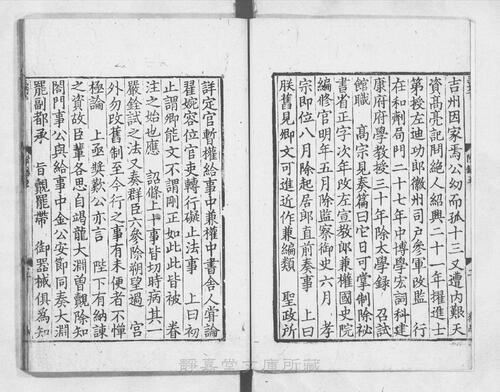 吉州因家焉公幼而孤十三又遭内艱天
資高亮記聞絶人紹興二十一年擢進士
第授左迪功郎徽州司戸參軍政監行
在和劑局門二十七年中博學宏詞科建
康府府學教授三十年除太學錄召試
館職高宗見奏篇曰它日可掌制除祕
書省正字次年改左宣敎郎兼權國史院
編修官明年五月除監察御史六月孝
宗即位八月除起居郎直前奏事上曰
朕舊見卿文可進近作兼編類聖政所
詳定官暫權給事中兼權中書舍人嘗論
翟婉容位官吏轉行礙止法事上曰初
止謂卿能文不謂剛正如此此皆被眷
注之始也應詔條上十事皆切時病其一
嚴銓試之法又奏群臣六參除朔望過宮
外勿改舊制至今行之事有未便者不憚
極論上丞奬歎公亦言陛下有納諫
之資故臣輩各思自竭龍大淵曾覿除知
閤門事公與給事中金公安節同奏大淵
罷副都承旨覿罷帶御器械俱爲知
靜嘉堂文庫所藏